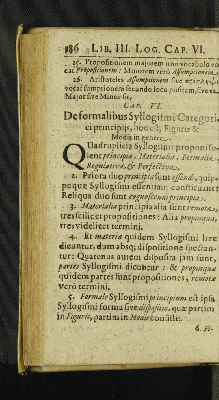 186 LIB. III. LOG. CAP. VI.
25. Propositionem majorem uno vocabulo vo-
cat Propositionem: Minorem verò Assumptionem.
26. Aristoteles Assumptionem sive
vocat sumptionem secundo loco positam, sive ea
Major sive Minor sit.
CAP. VI.
De formalibus Syllogismi Categori-
ci principiis, hoc est, Figuris &
Modis in genere.
Quadruplicis Syllogismi proponiso-
lent principia, Materialia, Formalia,
Regulativa, & Perfectiva.
2. Priora duo principia sunt essendi, quip-
pe quæ Syllogismi essentiam constituant
Reliqua duo sunt cognoscendi principia.
3. Materialia principia alia sunt remota,
tres scilicet propositiones: Alia propinqua,
tres videlicet termini.
4. Et materia quidem Syllogismi hæc
dicuntur, dum absque dispositione spectan-
tur: Quatenus autem disposita jam sunt,
partes Syllogismi dicuntur; & propinquæ
quidem partes sunt propositiones, remotæ
verò termini.
5. Formale Syllogismi principium est ipsa
Syllogismi forma sive dispositio, quæ partim
in Figuris, partim in Modis consistit.
6. Fi-